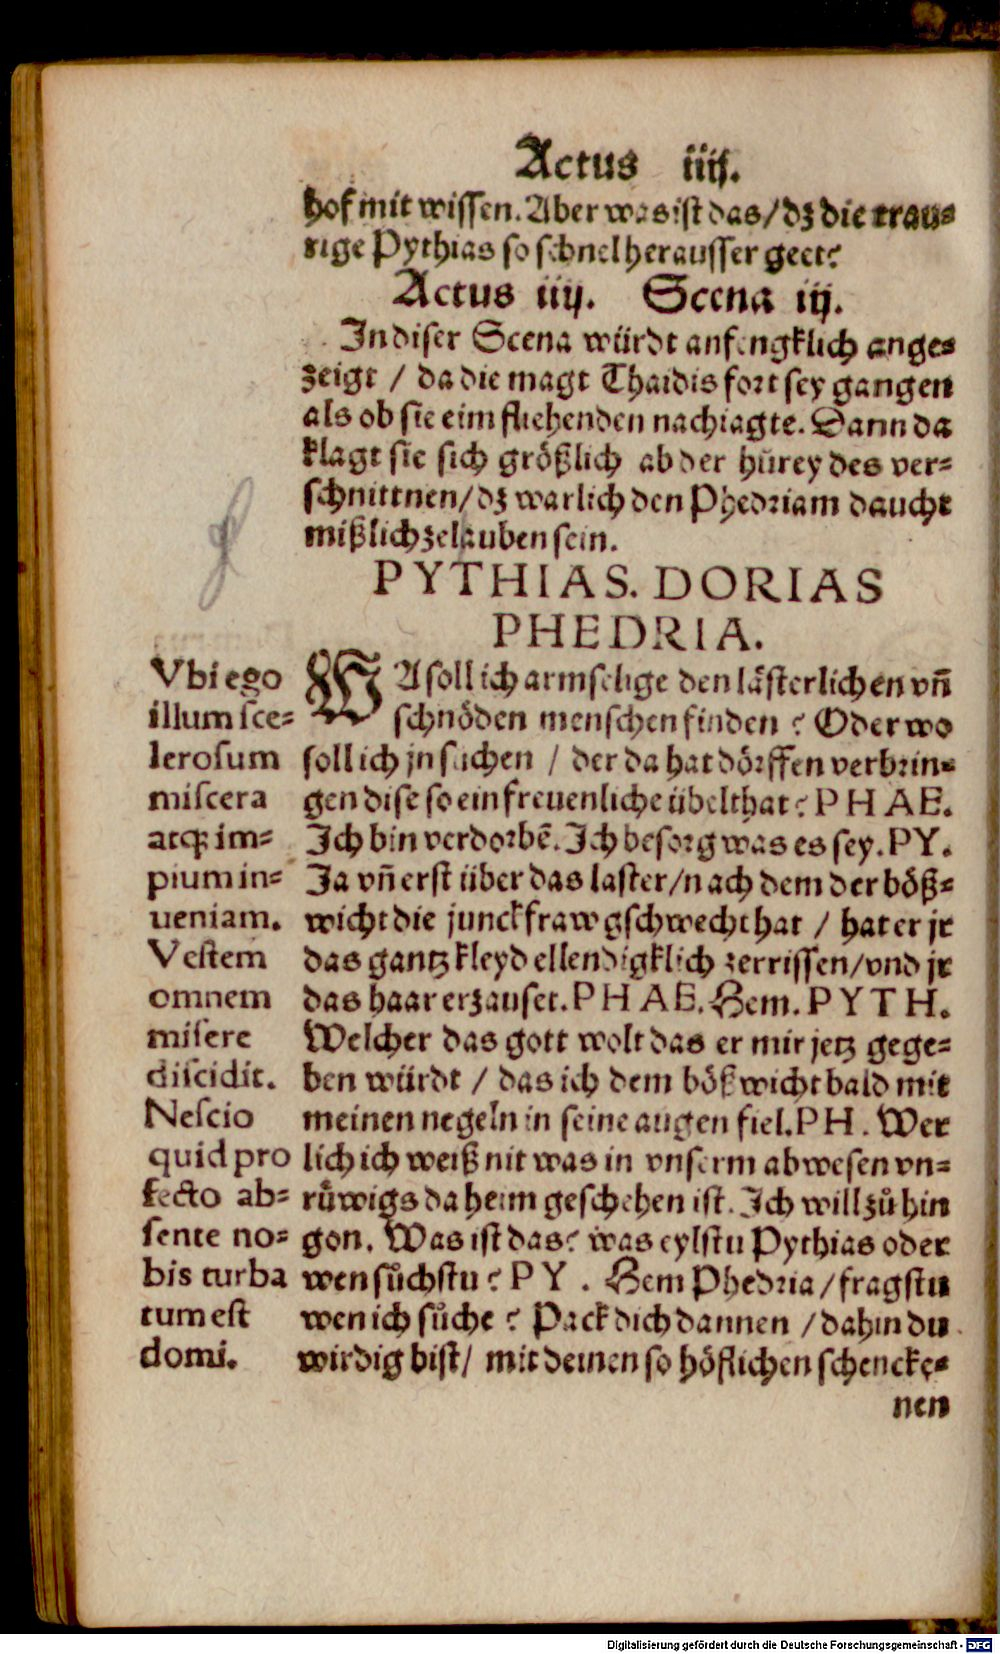 Actus iiij.
hof mit wissen. Aber was ist das / dz die trau⸗
rige Pythias so schnel herausser geet?
Actus iiij. Scena iij.
In diser Scena würdt anfengklich ange⸗
zeigt / da die magt Thaidis fort sey gangen
als ob sie eim fliehenden nachiagte. Dann da
klagt sie sich größlich ab der hůrey des ver⸗
schnittnen / dz warlich den Phedriam daucht
mißlich zelauben sein.
PYTHIAS. DORIAS
PHEDRIA.
WA soll ich armselige den lästerlichen vñ
schnöden menschen finden? Oder wo
soll ich jn suchen / der da hat dörffen verbrin⸗
gen dise so ein freuenliche übelthat? PHAE.
Ich bin verdorbē. Ich besorg was es sey. PY.
Ja vñ erst über das laster / nach dem der böß⸗
wicht die junckfraw gschwecht hat / hat er jr
das gantz kleyd ellendigklich zerrissen / vnd jr
das haar erzauset. PHAE. Hem. PYTH.
Welcher das gott wolt das er mir jetz gege⸗
ben würdt / das ich dem bößwicht bald mit
meinen negeln in seine augen fiel. PH. Wer
lich ich weiß nit was in vnserm abwesen vn⸗
růwigs daheim geschehen ist. Ich will zů hin
gon. Was ist das? was eylstu Pythias oder
wen sůchstu? PY. Hem Phedria / fragstu
wen ich sůche? Pack dich dannen / dahin du
wirdig bist / mit deinen so höflichen schencke⸗
nen
Vbi ego
illum sce⸗
lerosum
miscera
atq́; im⸗
pium in⸗
ueniam.
Vestem
omnem
misere
discidit.
Nescio
quid pro
fecto ab⸗
sente no⸗
bis turba
tum est
domi.
Digitalisierung gefördert durch die Deutsche Forschungsgemeinschaft - DFG